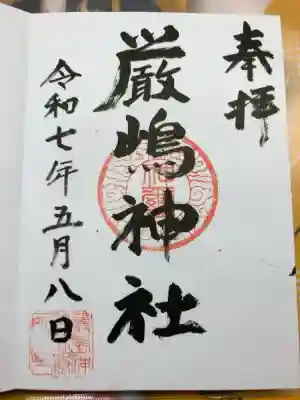 奉拝
厳嶋神社
令和七年五月八日